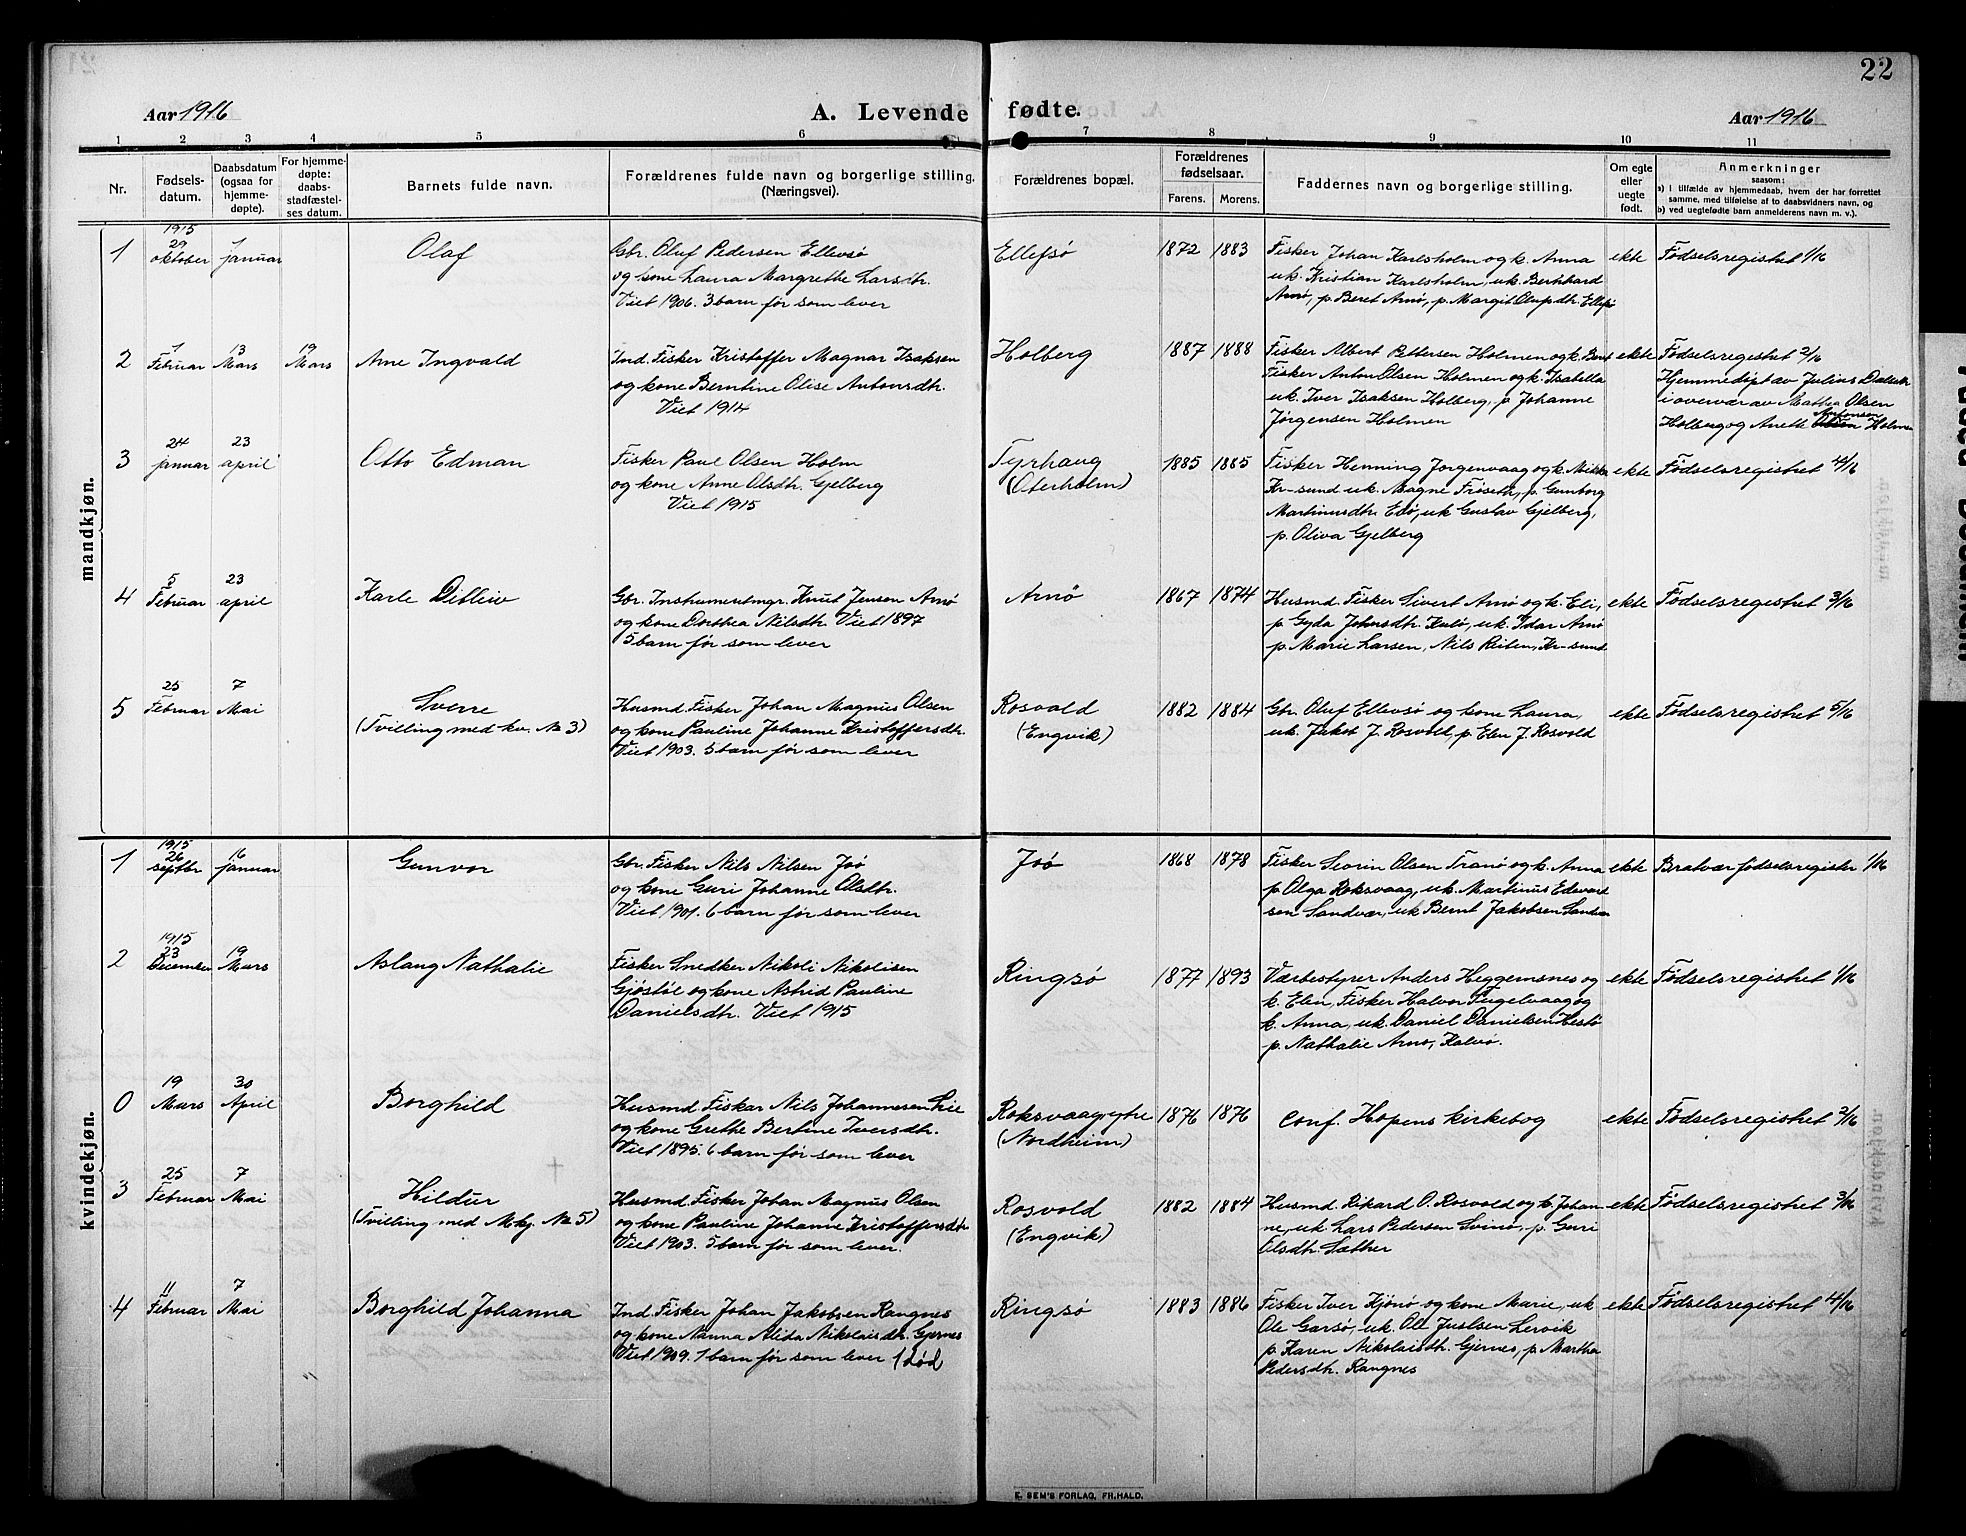 22
Aar 1916
A. Levende fødte.
Aar 1916
1 2 3 4 5 6 7 8 9 10 11
Nr.
Fødsels-
datum.
Daabsdatum
(ogsaa for
hjemme-
døpte).
For hjemme-
døpte:
daabs-
stadfæstel-
ses datum.
Barnets fulde navn.
Forældrenes fulde navn og borgerlige stilling.
(Næringsvei).
Forældrenes bopæl.
Forældrenes
fødselsaar.
Farens. Morens.
Faddernes navn og borgerlige stilling.
Om egte
eller
uegte
født.
Anmerkninger
saasom:
a) i tilfælde av hjemmedaab, hvem der har forrettet
samme, med tilføielse af to daabsvidners navn, og
b) ved uegtefødte barn anmelderens navn m. v.).
mandkjøn.
1
1915
29
oktober
1
januar
Olaf
Gbr. Oluf Pedersen Ellevsø
og kone Laura Margrethe Larsdtr.
Viet 1906. 3 barn før som lever
Ellefsø
1872 1883
Fisker Johan Karlsholm og k. Anna
uk. Kristian Karlsholm, uk. Bernhard
Arnø, p. Beret Arnø, p. Margit Olufsdtr. Ellefsø
ekte
Fødselsregistret 1/16
2
1
Februar
13
Mars
19
Mars
Arne Ingvald
Ind. Fisker Kristoffer Magnar Isaksen
og kone Berntine Olise Antonsdtr.
Viet 1914
Holberg
1887 1888
Fisker Albert Pettersen Holmen og k. Berit
Fisker Anton Olsen Holmen og k. Isabella
uk. Iver Isaksen Holberg, p. Johanne
Jørgensen Holmen
ekte
Fødselsregestret 2/16
Hjemmedøpt av Julius
i overvær av Mathea Olsen
Holberg og Anette Antonsen Holmen
3
24
januar
23
april
Otto Edman
Fisker Paul Olsen Holm
og kone Anne Olsdtr. Gjelberg
Viet 1915
Tyrhaug
(Oterholm)
1885 1885
Fisker Henning Jørgenvaag og k.
Kr-sund uk. Magne Frøseth, p. Gunborg
Martinusdtr. Edø, uk Gustav Gjelberg,
p. Oliva Gjelberg
ekte
Fødselsregistret 4/16
4
5
Februar
23
april
Karle Ditleiv
Gbr. Instrumentmgr. Knut Jensen Arnø
og kone Dorthea Nilsdtr. Viet 1897
5 barn før som lever
Arnø
1867 1874
Husmd. Fisker Sivert Arnø og k. Eli,
p. Gyda Johnsdtr. Kulø, uk. Idar Arnø
p. Marie Larsen, Nils Reiten, Kr-sund
ekte
Fødselsregistret 3/16
5
25
Februar
7
Mai
Sverre
(Tvilling med kv. № 3)
Husmd. Fisker Johan Magnus Olsen
og kone Pauline Johanne Kristoffersdtr.
Viet 1903. 5 barn før som lever
Rosvold
(Engvik)
1882 1884
Gbr. Oluf Ellevsø og kone Laura,
uk. Jakob J. Rosvold, p. Elen J. Rosvold
ekte
Fødselsregistret 5/16
kvindekjøn.
1
1915
26
septbr
16
januar
Gunvor
Gbr. Fisker Nils Nilsen Joø
og kone Guri Johanne Olsdtr.
Viet 1901. 6 barn før som lever
Joø
1868 1878
Fisker Sevrin Olsen Tranø og k. Anna
p. Olga Roksvaag, uk. Martinus Edevard
sen Sandvær, uk Bernt Jakobsen Sandvær
ekte
Bratvær fødselsregister 1/16
2
1915
23
December
19
Mars
Aslaug Nathalie
Fisker Snedker Nikoli Nikolisen
Gjøstøl og kone Astrid Pauline
Danielsdtr. Viet 1915
Ringsø
1877 1893
Værbestyrer Anders Heggemsnes og
k. Elen, Fisker Halvor Fugelvaag og
k. Anna, uk. Daniel Danielsen Hestø
p. Nathalie Arnø, Kalvø.
ekte
Fødselsregistret 1/16
0
19
Mars
30
April
Borghild
Husmd. Fisker Nils Johannesen Lie
og kone Grethe Bertine Iversdtr.
Viet 1895. 6 barn før som lever
Roksvaageytre
(Nordheim)
1876 1876
Conf. Hopens kirkebog
ekte
Fødselsregistret 2/16
3
25
Februar
7
Mai
Hildur
(Tvilling med Mkj. № 5)
Husmd. Fisker Johan Magnus Olsen
og kone Pauline Johanne Kristoffersdtr
Viet 1903. 5 barn før som lever.
Rosvold
(Engvik)
1882 1884
Husmd. Rikard O. Rosvold og k. Johan
ne, uk. Lars Pedersen Svinø, p. Guri
Olsdtr. Sæther
ekte
Fødselsregistret 3/16
4
11
Februar
7
Mai
Borghild Johanna
Ind. Fisker Johan Jakobsen Rangnes
og kone Nanna Alida Nikolaisdtr. Gjernes
Viet 1909. 1 barn før som lever 1 død
Ringsø
1883 1886
Fisker Iver Kjønø og kone Marie, uk
Ole Garsø, uk. Ole Juelsen Lervik
p. Karen Nikolaisdtr. Gjernes, p. Martha
Pedersdtr. Rangnes
ekte
Fødselsregistret 4/16
E. SEM'S FORLAG, FR.HALD.